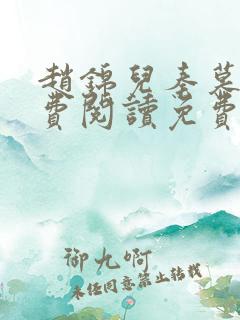 趙錦兒秦慕
費閱讀免費
御九啊
未經同意禁止轉載